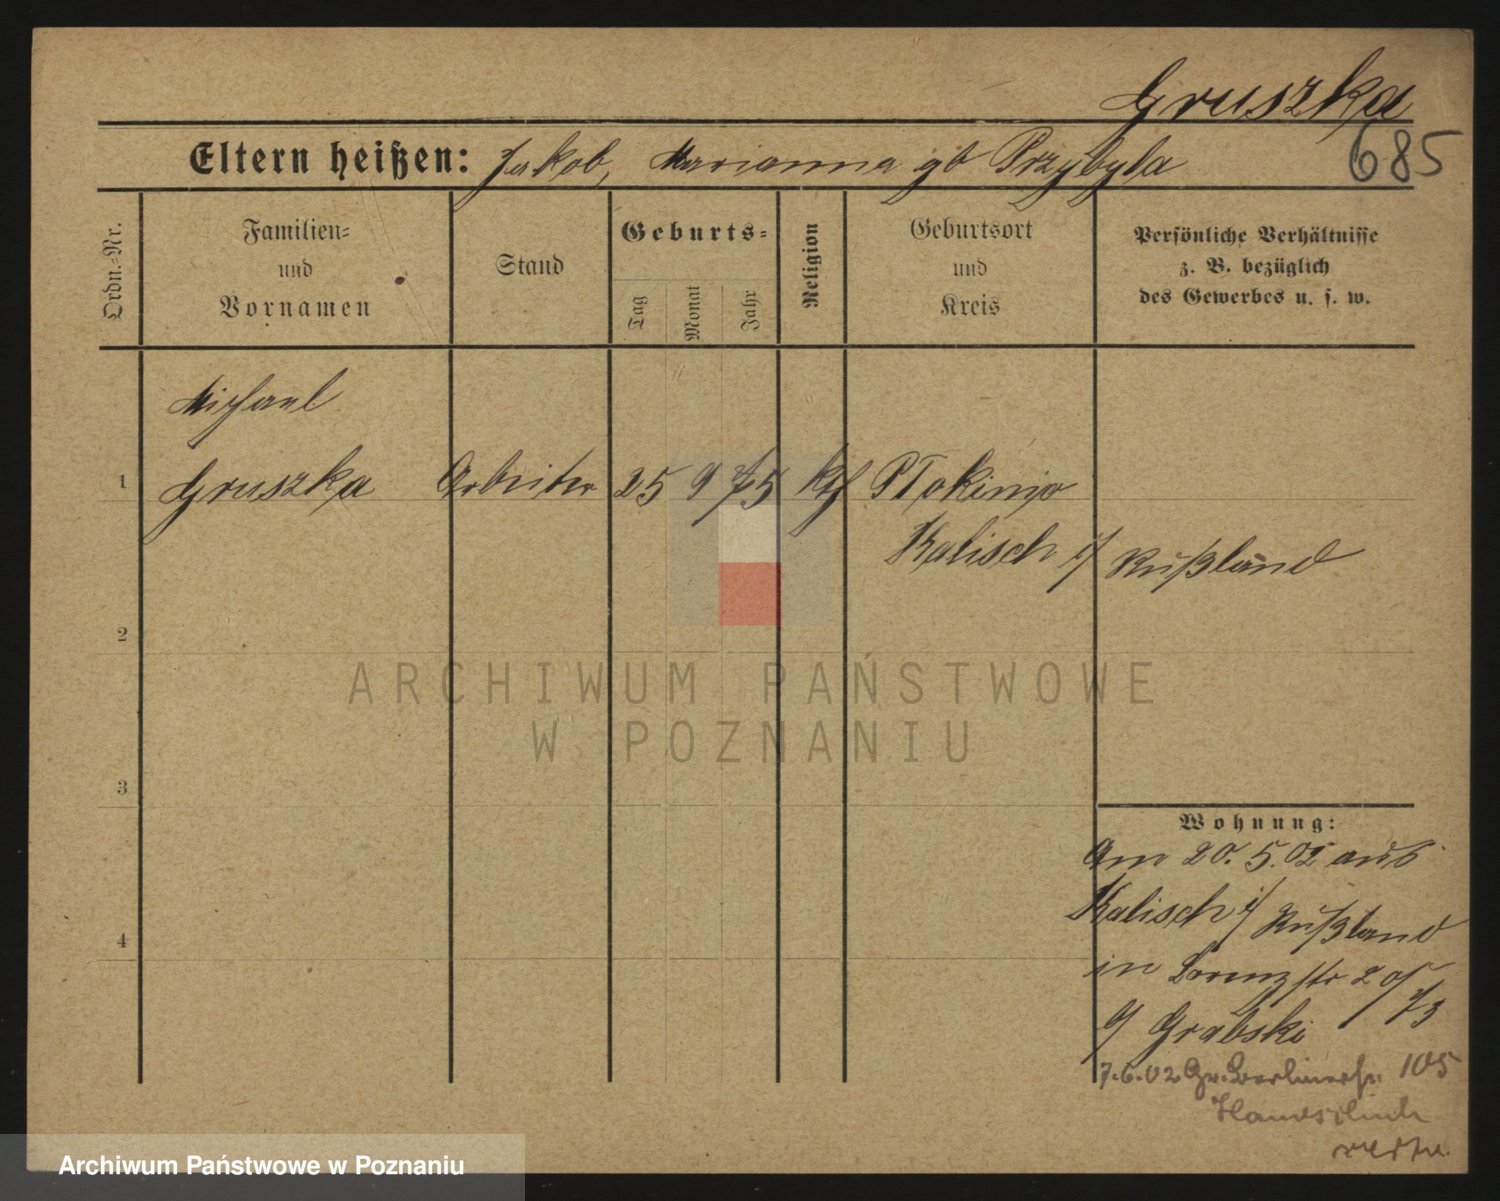 Gruszka
685
Eltern heißen: Jakob, Marianna gb Przybyla
Ordn.-Nr.
Familien- und Vornamen
Stand
Geburts-
Tag
Monat
Jahr
Religion
Geburtsort und Kreis
Persönliche Verhältnisse
z. B. bezüglich
des Gewerbes u. s. w.
Michael
1 Gruszka Arbeiter 25 9 75 kth
Kalisch i/ Rußland
2
ARCHIWUM PAŃSTWOWE
W POZNANIU
3
Wohnung:
Am 20.5.02 aus
Kalisch i/ Rußland
4
in Lorenzstr 20
b/ Grabski
7.6.02 Gr. Berlinerstr. 105
Archiwum Państwowe w Poznaniu